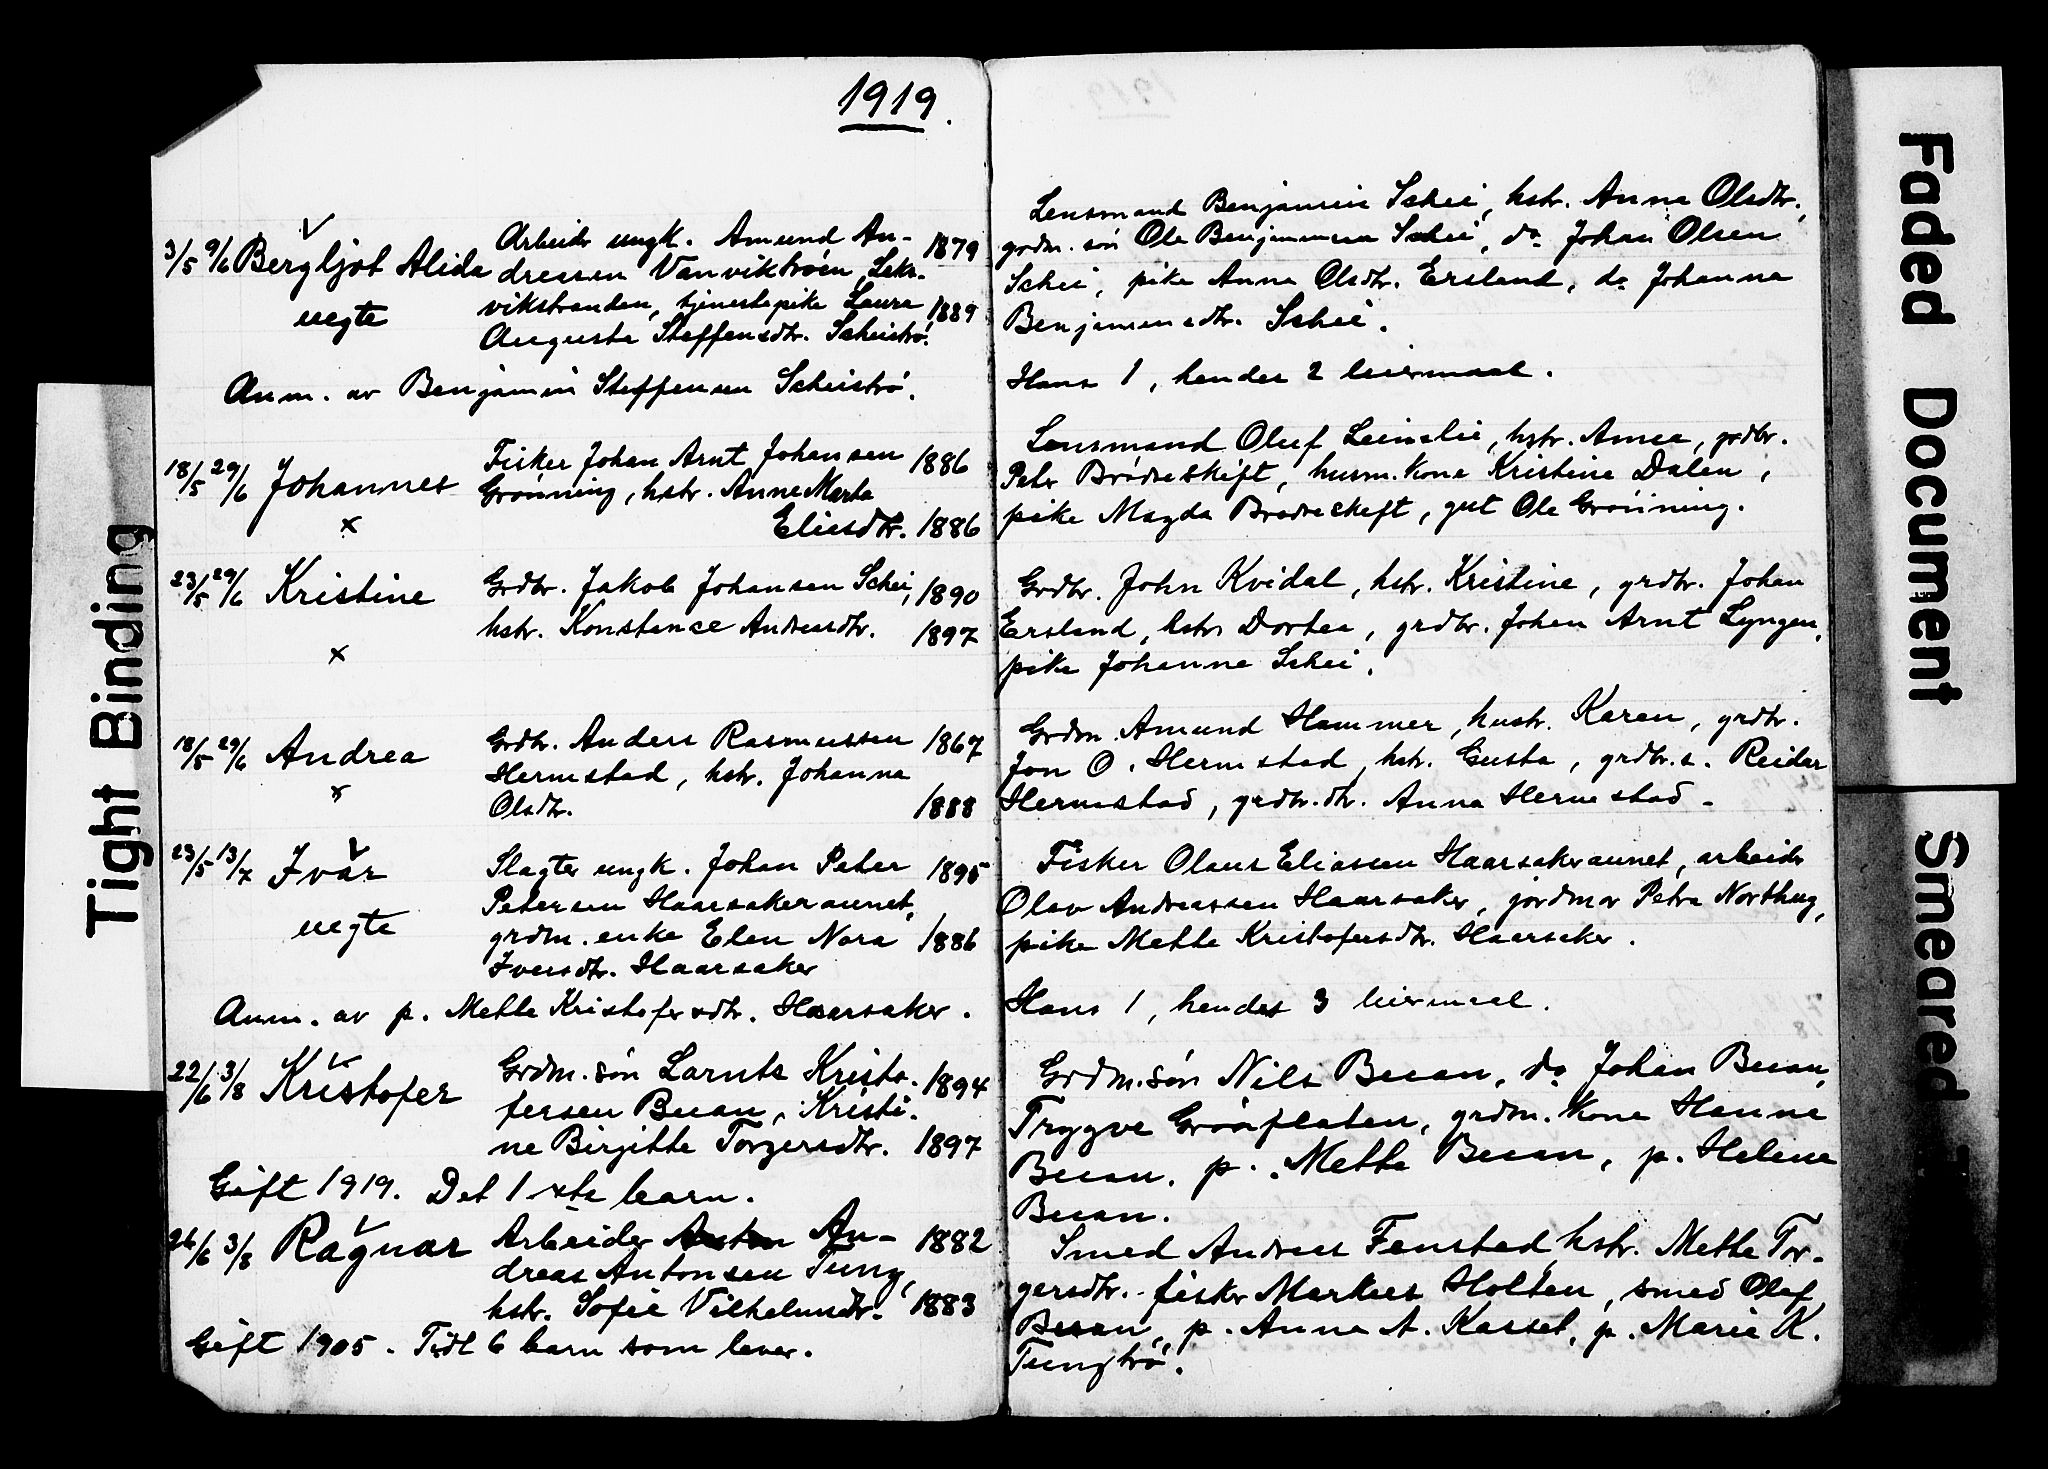 1919.
3/5 9/6 Bergljot Alida
uegte
Arbeidr ungk. Amund An- 1879
dressen Vanviktrøen, Leks-
vikstranden, tjenestepike Laura 1889
Auguste Steffensdtr. Scheistrø.
Anm. av Benjamin Steffensen Scheistrø.
18/5 29/6 Johannes
x
Fisker Johan Arnt Johansen 1886
Grønning, hstr. Anne Marta
Eliesdtr. 1886
23/5 29/6 Kristine
x
Grdbr. Jakob Johansen Schei, 1890
hstr. Konstance Andreasdtr. 1897
18/5 29/6 Andrea
x
Grdbr. Anders Rasmussen 1867
Hermstad, hstr. Johanna
Olsdtr. 1888
23/5 13/7 Ivar
uegte
Slagter ungk. Johan Peter 1895
Petersen Haarsakeraunet,
grdm. enke Elen Nora 1886
Iversdtr. Haarsaker
Anm. av p. Mette Kristofersdtr. Haarsaker.
22/6 3/8 Kristofer
Grdm. søn Larnts Kristo- 1894
fersen Buan, Kristi-
ne Birgitte Torgersdtr. 1897
Gift 1919. Det 1ste barn.
26/6 3/8 Ragnar
Arbeider Anton An- 1882
dreas Antonsen Tung,
hstr. Sofie Vilhelmsdtr. 1883
Gift 1905. Tidl 6 barn som lever.
Lensmand Benjamin Schei, hstr. Anne Olsdtr.,
grdm. søn Ole Benjaminsen Schei, do Johan Olsen
Schei, pike Anna Olsdtr. Ersland, do Johanna
Benjaminsdtr. Schei.
Hans 1, hendes 2 leiermaal.
Lensmand Oluf Leinslie, hstr. Anna, grdbr.
Peter Brødreskift, husm. kone Kristine Dalen,
pike Magda Brødreskeft, gut Ole Grønning.
Grdbr. John Kvidal, hstr. Kristine, grdbr. Johan
Ersland, hstr Dortea, grdbr. Johan Arnt Lyngen,
pike Johanna Schei.
Grdm. Amund Hammer, hustr. Karen, grdbr.
Jon O. Hermstad, hstr. Gusta, grdbr. s. Reidar
Hermstad, grdbr. dtr. Anna Hermstad.
Fisker Olaus Eliassen Haarsakeraunet, arbeidr
Olav Andreassen Haarsaker, jordmor Petra Northug,
pike Mette Kristofersdtr. Haarsaker.
Hans 1, hendes 3 leiermaal.
Grdm. søn Nils Buan, do Johan Buan,
Trygve Grønflaten, grdm. kone Hanna
Buan, p. Mette Buan, p. Helene
Buan.
Smed Andreas Fenstad, hstr. Mette Tor-
gersdtr. fisker Markus Holten, smed Olaf
Buan, p. Anna A. Kassel, p. Marie K.
Tungtrø.
Tight Binding
Faded Document
Smeared